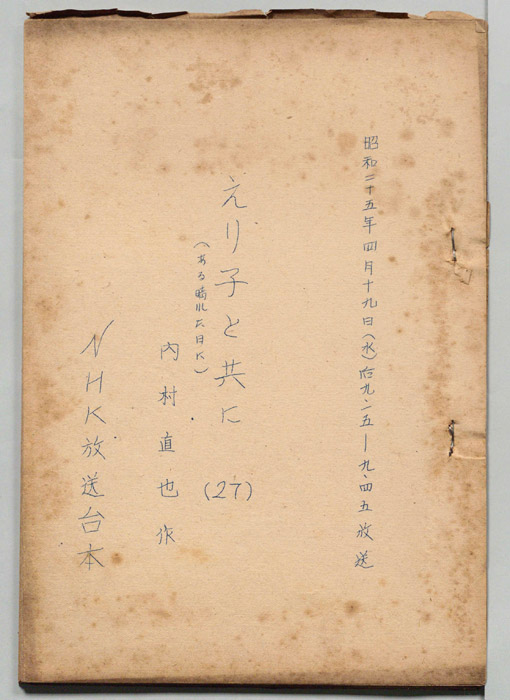 昭和二十五年四月十九日(水)后九.一五―九.四五放送
えり子と共に (27)
(ある晴れた日に)
内村直也作
NHK放送台本